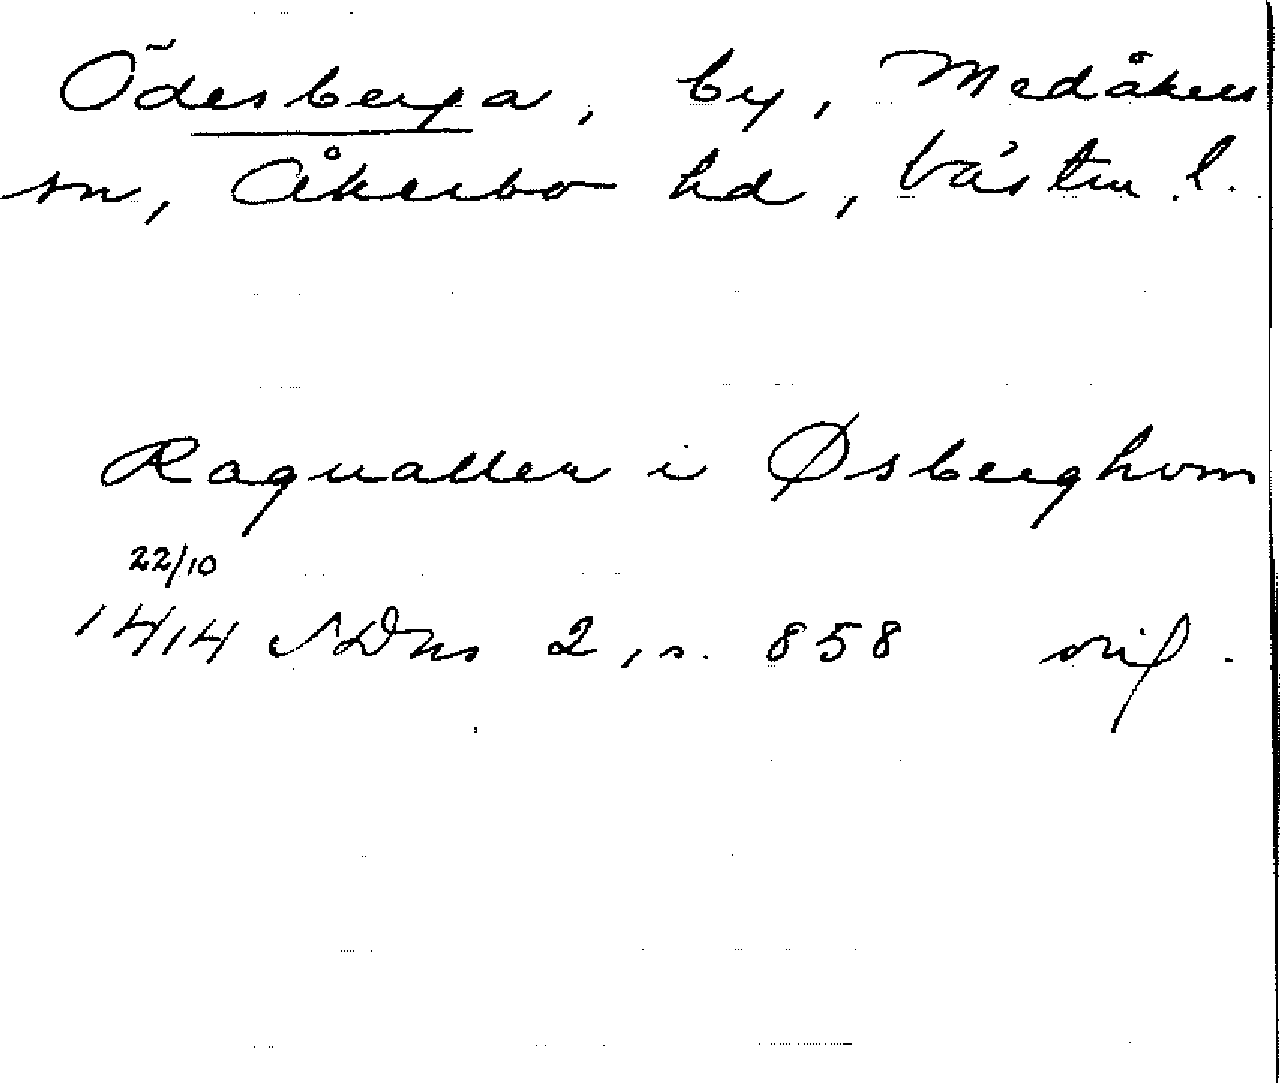 Ödesberga, by, Medåkers
sn, Åkerbo hd, Västm. l.
Raqualder i Øsberghom
22/10
1414 SDns 2, s. 858 orig.